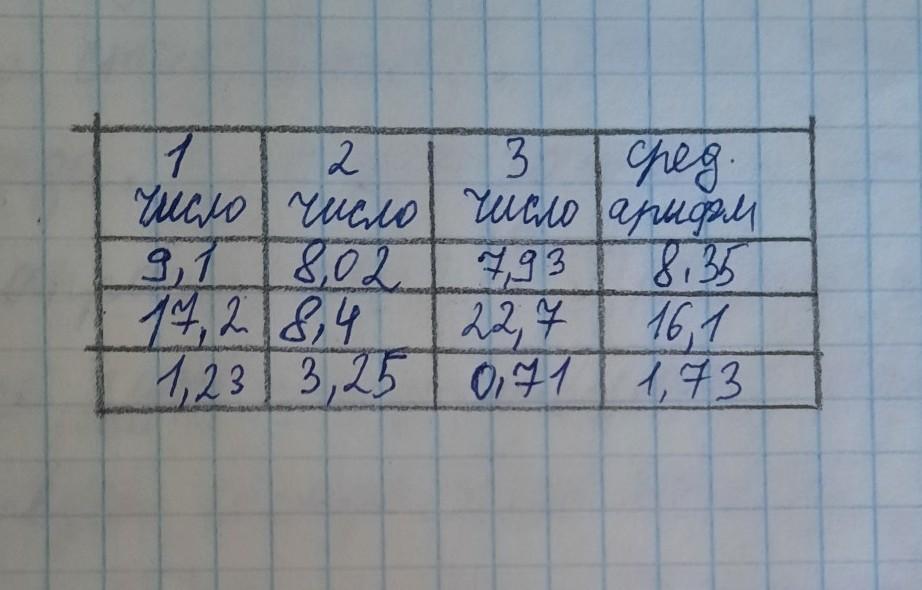 1 2 3 сред.
число число число арифм
9,1 8,02 7,93 8.35
17,2 8,4 22,7 16,1
1,23 3,25 0,71 1,73